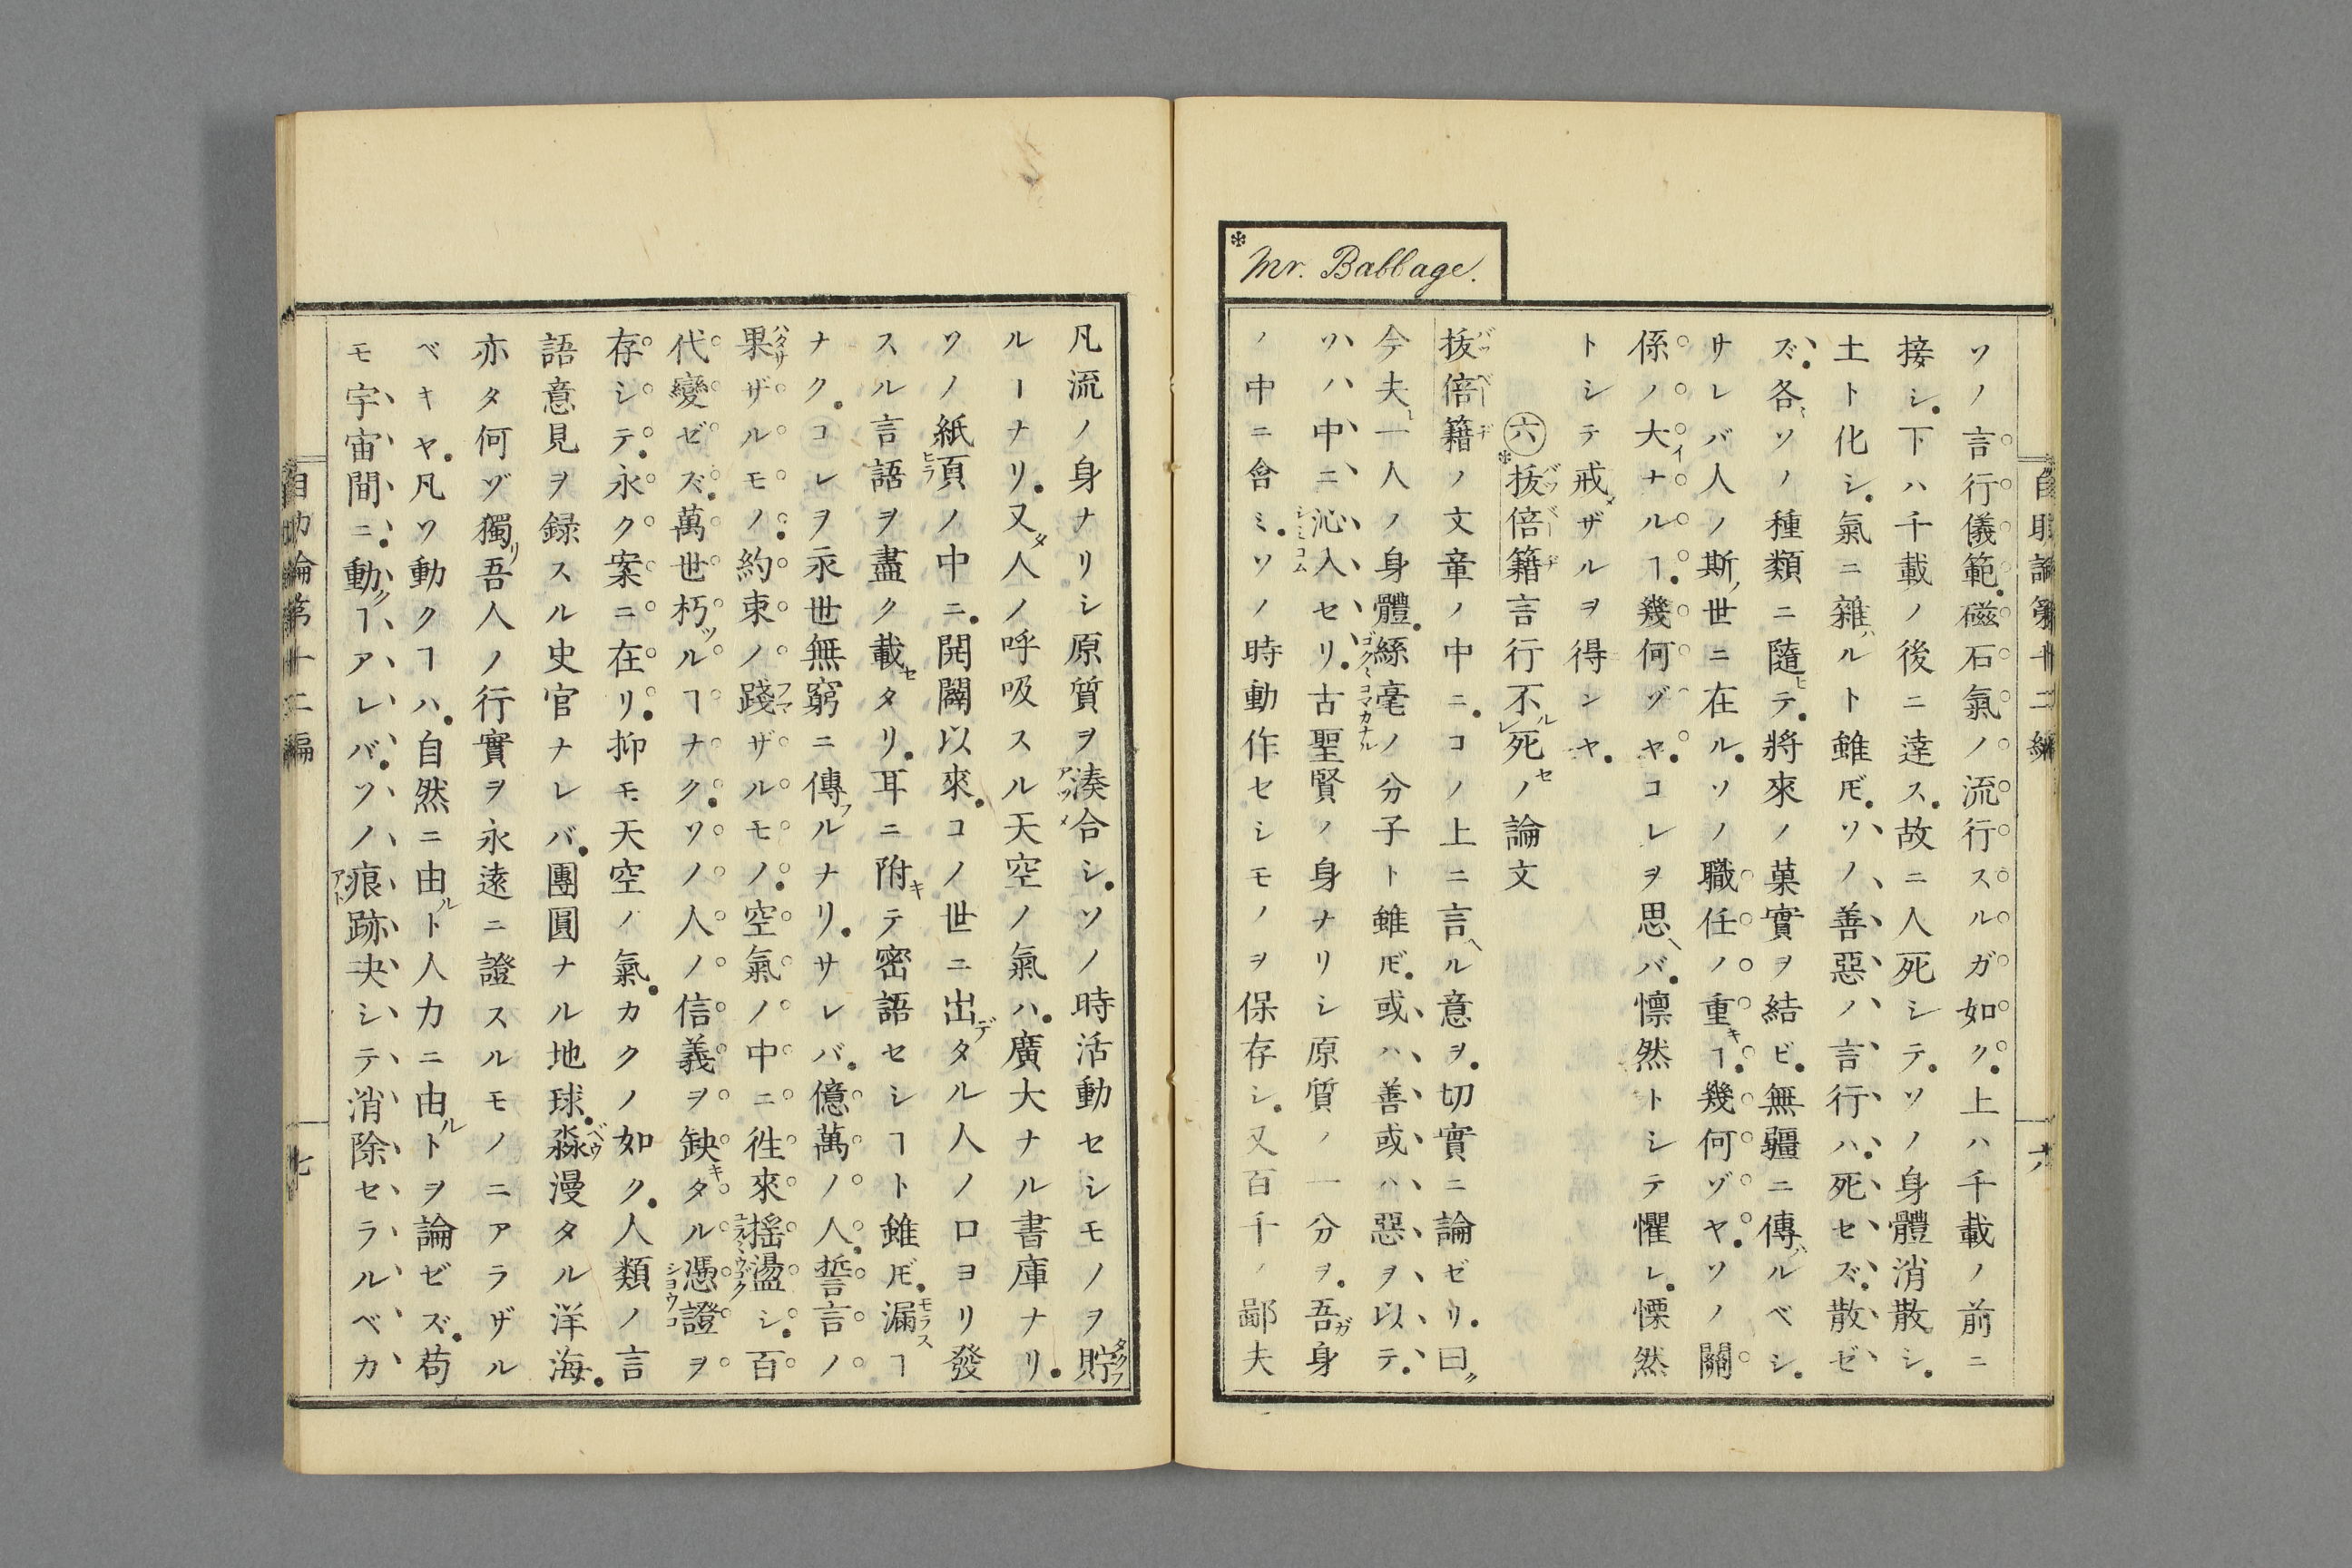 自助論第十二編
六
ソノ言行儀範。磁石氣ノ流行スルガ如ク。上ハ千載ノ前ニ
接シ。下ハ千載ノ後ニ達ス。故ニ人死シテ。ソノ身體消散シ。
土ト化シ。氣ニ雜ハルト雖𪜈。ソノ善惡ノ言行ハ。死セズ。散ゼ
ズ。各〻ソノ種類ニ隨ヒテ。將來ノ菓實ヲ結ビ。無疆ニ傳ハルベシ。
サレバ人ノ斯ノ世ニ在ル。ソノ職任ノ重キヿ。幾何ゾヤ。ソノ關
係ノ大イナルヿ。幾何ゾヤ。コレヲ思ヘバ、懍然トシテ懼レ。慄然
トシテ戒メザルヲ得ンヤ。
㊅抜倍籍言行不ルレ死セノ論文
*
Mr. Babbage.
抜倍籍ノ文章ノ中ニ。コノ上ニ言ヘル意ヲ。切實ニ論ゼリ。曰ク
今夫レ一人ノ身體。絲毫ノ分子ト雖𪜈。或ハ善或ハ惡ヲ以テ。
ソハソハ中ニ沁入セリ。古聖賢ノ身ナリシ原質ノ一分ヲ。吾ガ身
ノ中ニ會ミ。ソノ時動作セシモノヲ保存シ。又百千ノ鄙夫
凡流ノ身ナリシ原質ヲ湊合シ。ソノ時活動セシモノヲ貯フ
ルヿナリ。又タ人ノ呼吸スル天空ノ氣ハ。廣大ナル書庫ナリ。
ソノ紙頁ノ中ニ。開闢以來。コノ世ニ出デタル人ノ口ヨリ發
スル言語ヲ盡ク載セタリ。耳ニ附キテ密語セシヿト雖𪜈。漏スヿ
ナク。コレヲ永世無窮ニ傳フルナリ。サレバ。億萬ノ人。誓言ノ
果サザルモノ。約束ノ踐マザルモノ。空氣ノ中ニ往來搖盪シ。百
代變ゼズ。萬世朽ツルヿナク。ソノ人ノ信義ヲ缺キタル憑證ヲ
存シテ。永ク案ニ在リ。抑モ天空ノ氣。カクノ如ク。人類ノ言
語意見ヲ録スル史官ナレバ。團圓ナル地球。淼漫タル洋海。
亦タ何ゾ獨リ吾人ノ行實ヲ永遠ニ證スルモノニアラザル
ベキヤ。凡ソ動クヿハ。自然ニ由ルト人力ニ由ルトヲ論ゼズ。苟
モ宇宙間ニ。動クヿアレバ。ソノ痕跡決シテ消除セラルベカ
自助論第十二編
七